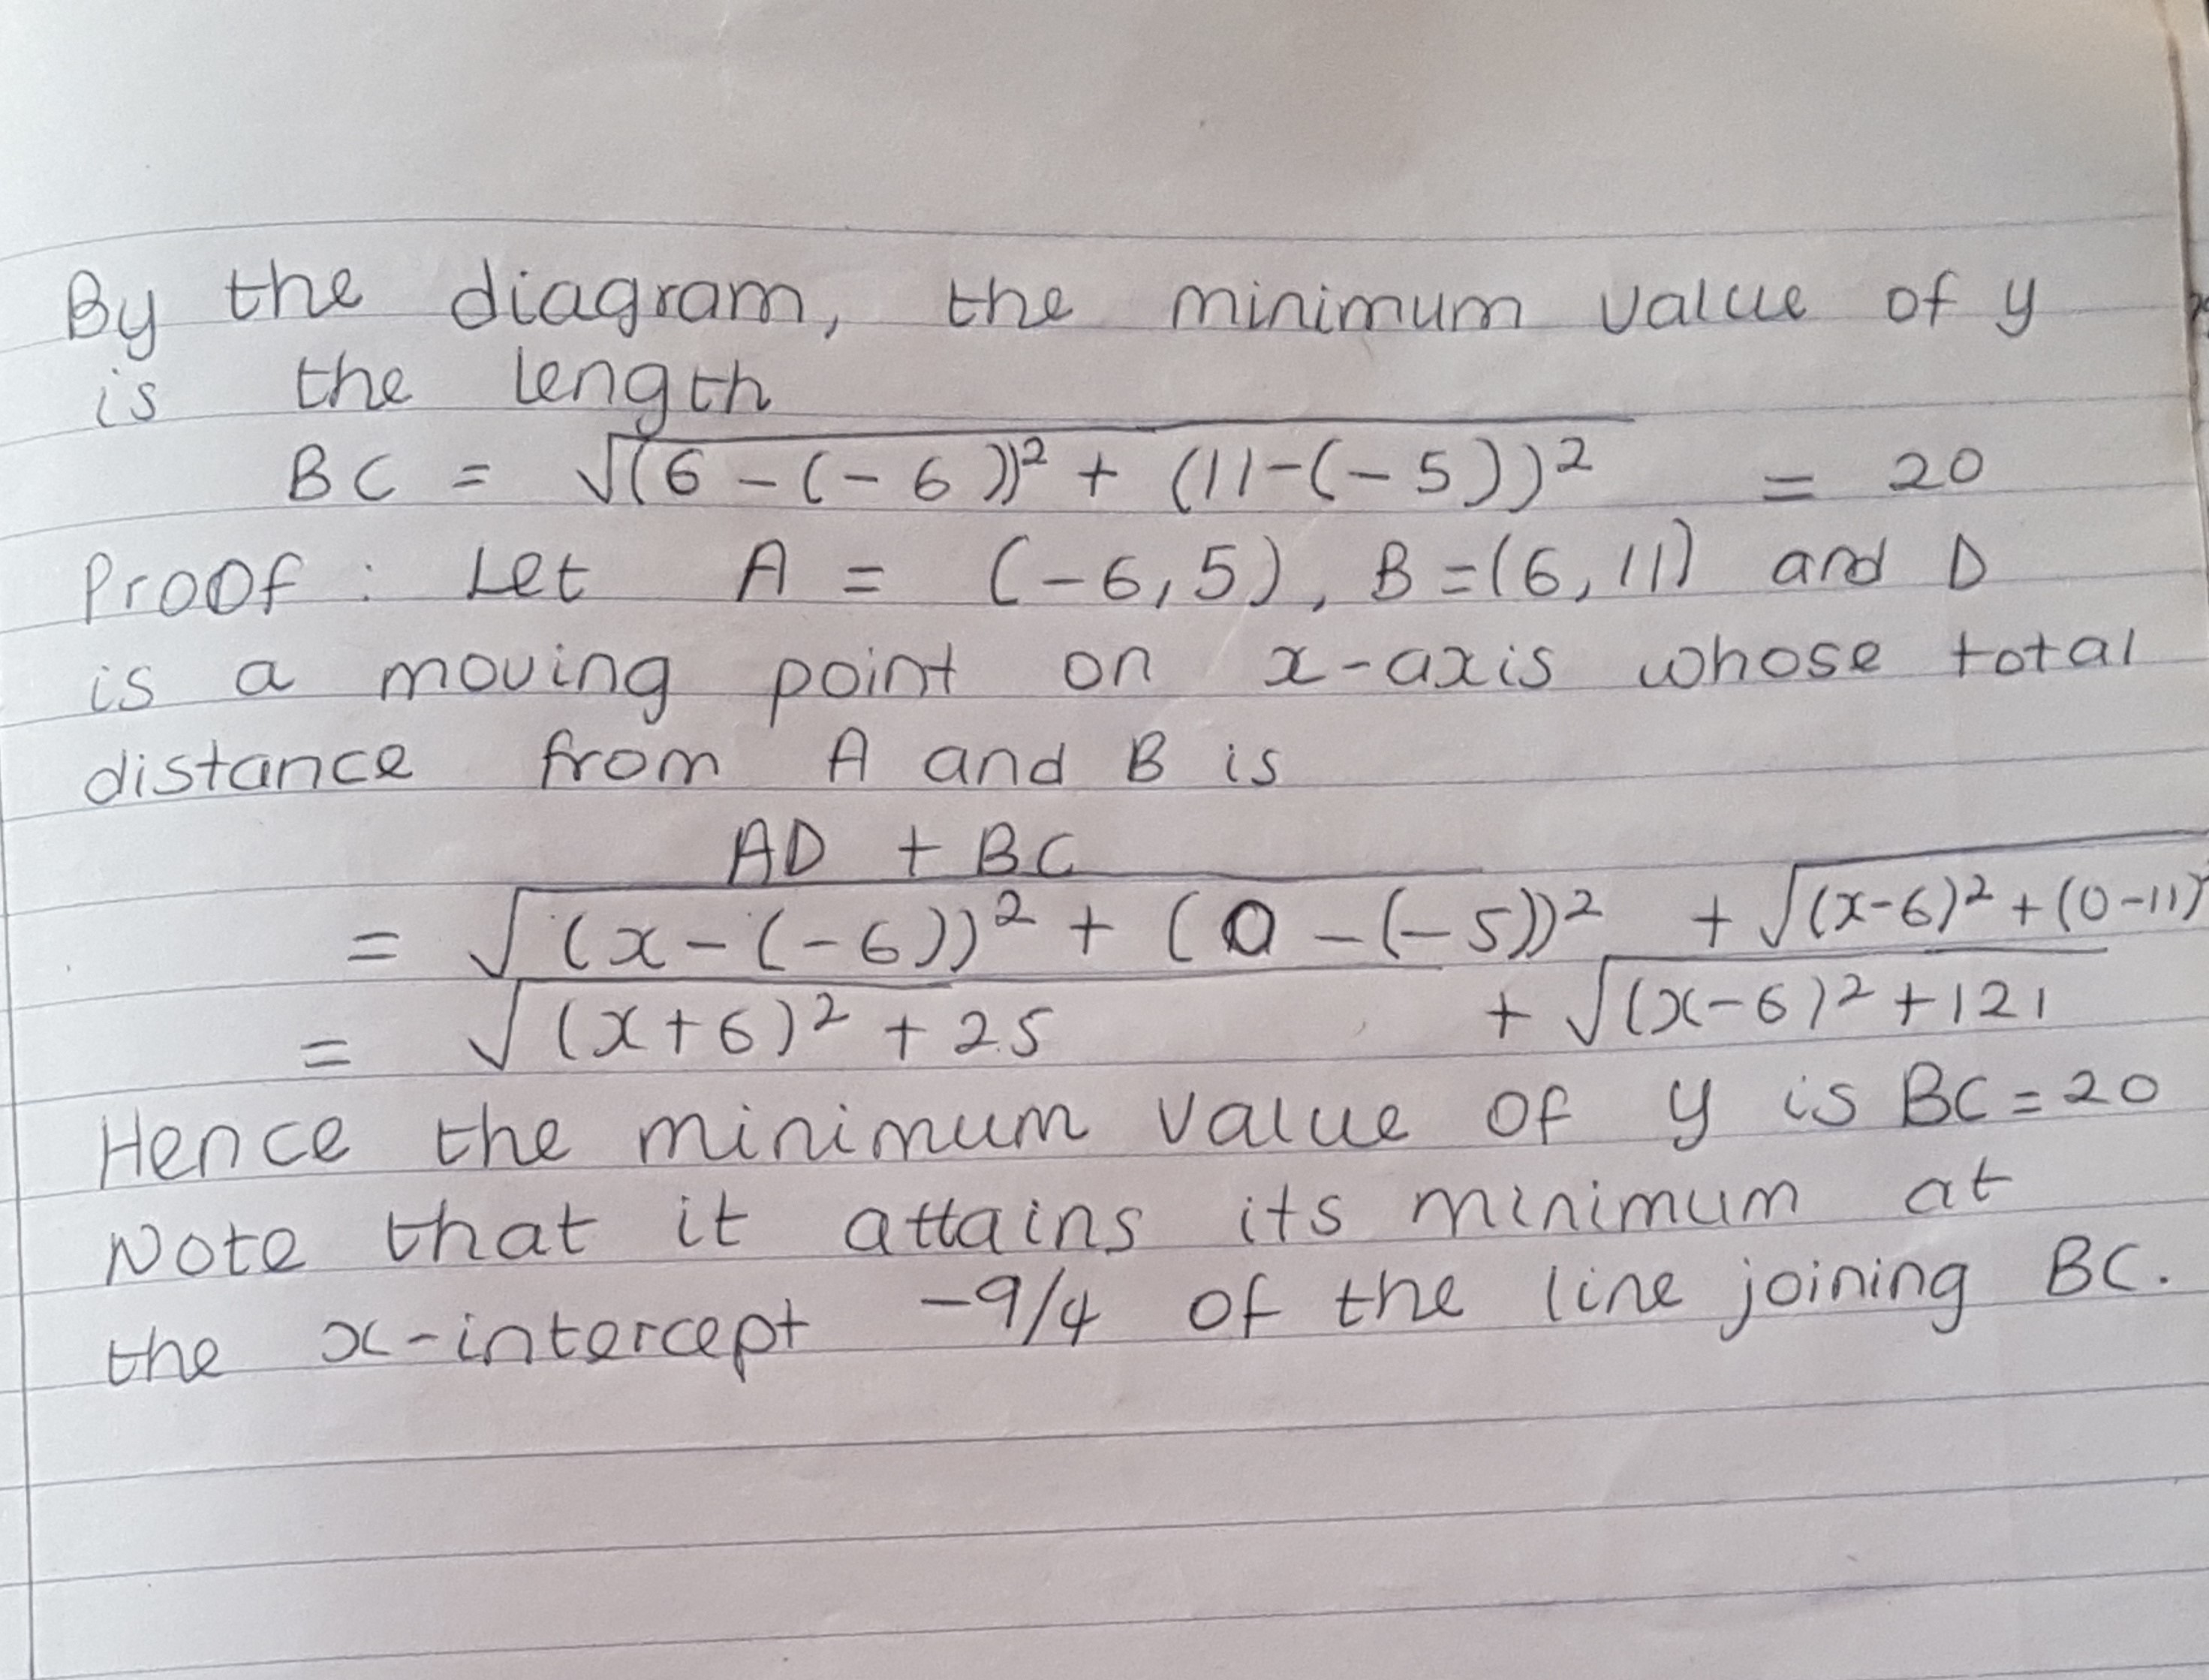 By the diagram, the minimum value of y
is the length
BC = √(6-(-6))² + (11-(-5))² = 20
Proof : Let A = (-6,5), B=(6,11) and D
is a moving point on x-axis whose total
distance from A and B is
AD + BC
= √(x-(-6))² + (0-(-5))² + √(x-6)² + (0-11)²
= √(x+6)² + 25 + √(x-6)² + 121
Hence the minimum value of y is BC = 20
Note that it attains its minimum at
the x-intercept -9/4 of the line joining BC.